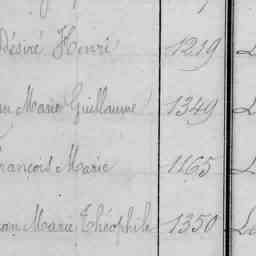 Désiré Henri 1219
Marie Guillaume 1349
François Marie 1165
Marie Théophile 1350